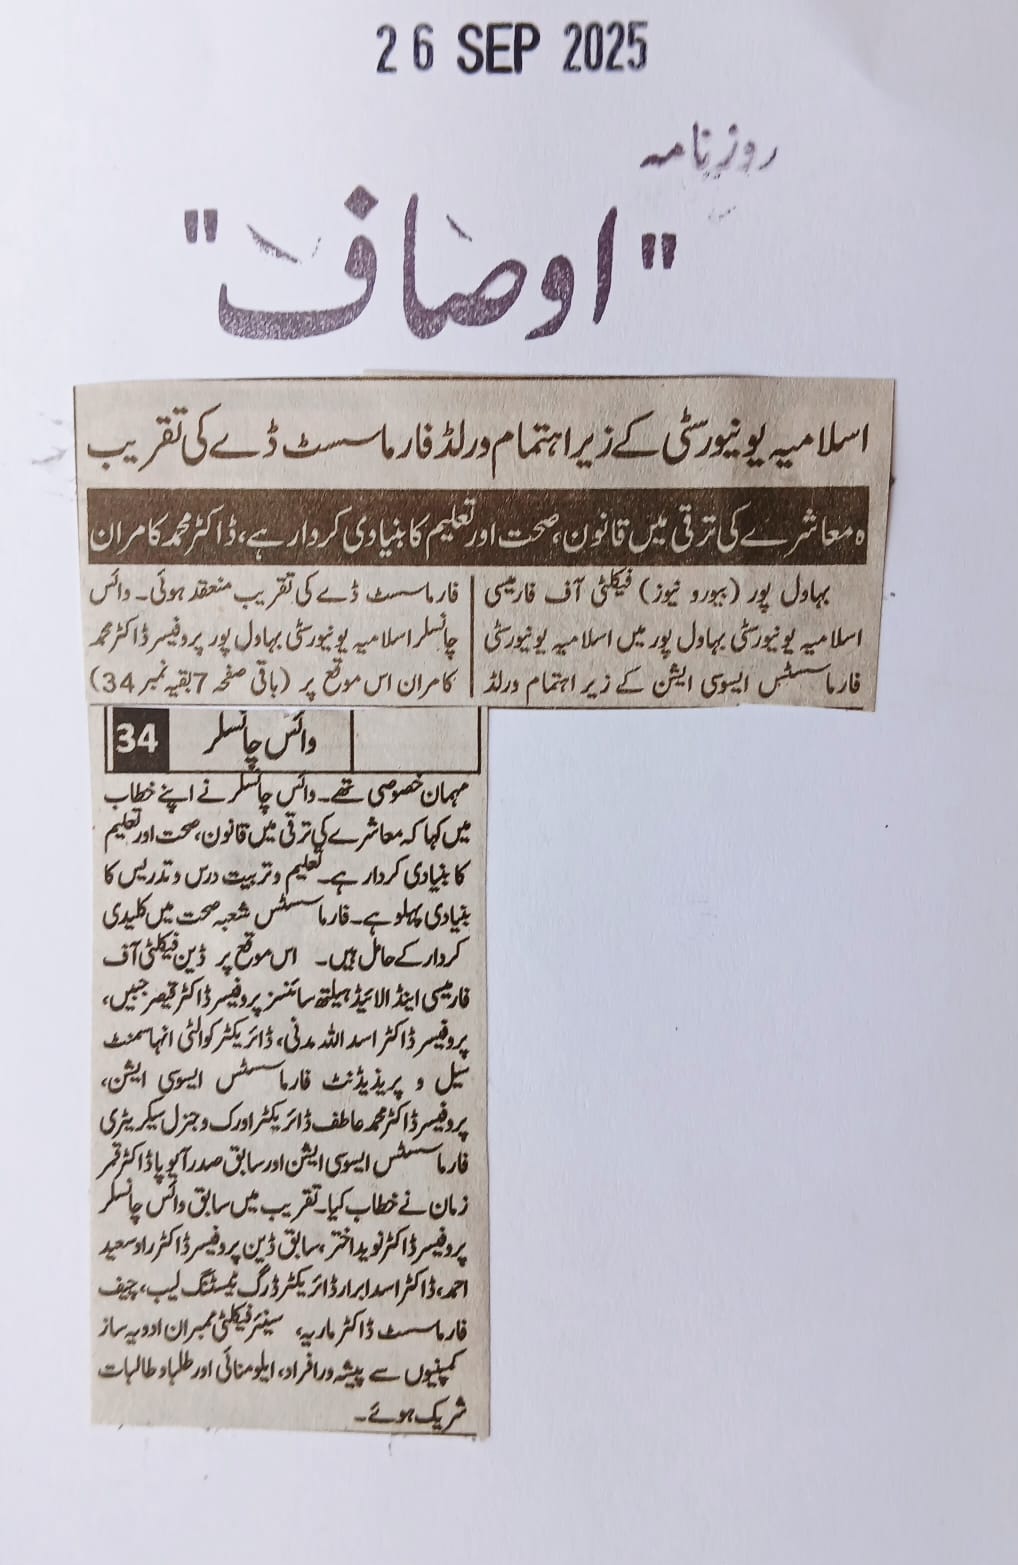 26 SEP 2025
روزنامہ
"اوصاف"
اسلامیہ یونیورسٹی کے زیر اہتمام ورلڈ فارماسسٹ ڈے کی تقریب
معاشرے کی ترقی میں قانون، صحت اور تعلیم کا بنیادی کردار ہے، ڈاکٹر محمد کامران
بہاول پور (بیورو نیوز) فیکلٹی آف فارمیسی
اسلامیہ یونیورسٹی بہاول پور میں اسلامیہ یونیورسٹی
فارماسسٹس ایسوسی ایشن کے زیر اہتمام ورلڈ
فارماسسٹ ڈے کی تقریب منعقد ہوئی۔ وائس
چانسلر اسلامیہ یونیورسٹی بہاول پور پروفیسر ڈاکٹر محمد
کامران اس موقع پر (باقی صفحہ 7 بقیہ نمبر 34)
وائس چانسلر 34
مہمان خصوصی تھے۔ وائس چانسلر نے اپنے خطاب
میں کہا کہ معاشرے کی ترقی میں قانون، صحت اور تعلیم
کا بنیادی کردار ہے۔ تعلیم و تربیت درس و تدریس کا
بنیادی پہلو ہے۔ فارماسسٹس شعبہ صحت میں کلیدی
کردار کے حامل ہیں۔ اس موقع پر ڈین فیکلٹی آف
فارمیسی اینڈ الائیڈ ہیلتھ سائنسز پروفیسر ڈاکٹر قیصر جبیں،
پروفیسر ڈاکٹر اسد اللہ مدنی، ڈائریکٹر کوالٹی انہاسمنٹ
سیل و پریذیڈنٹ فارماسسٹس ایسوسی ایشن،
پروفیسر ڈاکٹر محمد عاطف ڈائریکٹر اورک و جنرل سیکریٹری
فارماسسٹس ایسوسی ایشن اور سابق صدر آئیوپا ڈاکٹر قمر
زمان نے خطاب کیا۔ تقریب میں سابق وائس چانسلر
پروفیسر ڈاکٹر نوید اختر، سابق ڈین پروفیسر ڈاکٹر راؤ سعید
احمد، ڈاکٹر اسد ابرار ڈائریکٹر ڈرگ ٹیسٹنگ لیب، چیف
فارماسسٹ ڈاکٹر ماریہ، سینئر فیکلٹی ممبران ادویہ ساز
کمپنیوں سے پیشہ ور افراد، ایلومنائی اور طلبا و طالبات
شریک ہوئے۔